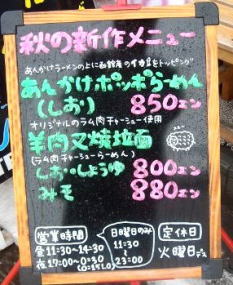 秋の新作メニュー
あんかけラーメンの上に函館産のイカ足をトッピング
あんかけポッポらーめん
(しお) 850エン
オリジナルのラム肉チャーシュー使用
羊肉叉焼拉面
(ラム肉チャーシューらーめん)
しお・しょうゆ 800エン
みそ 880エン
営業時間
昼11:30~14:30
夜17:00~0:30
日曜日のみ
11:30
23:00
定休日
火曜日デス